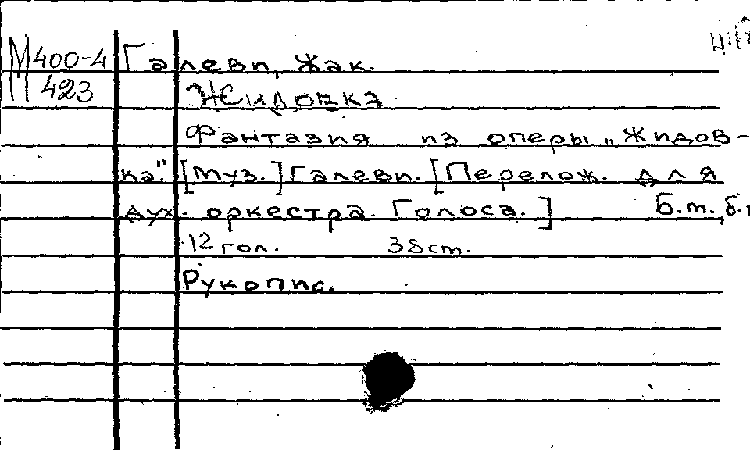 М400-4 Галеви, Жак.
423 Жидовка
Фантазия из оперы „Жидов-
ка". [Муз.] Галеви. [Перелож. для
дух. оркестра. Голоса.] Б.м., б.г
12 гол. 38 ст.
Рукопис.